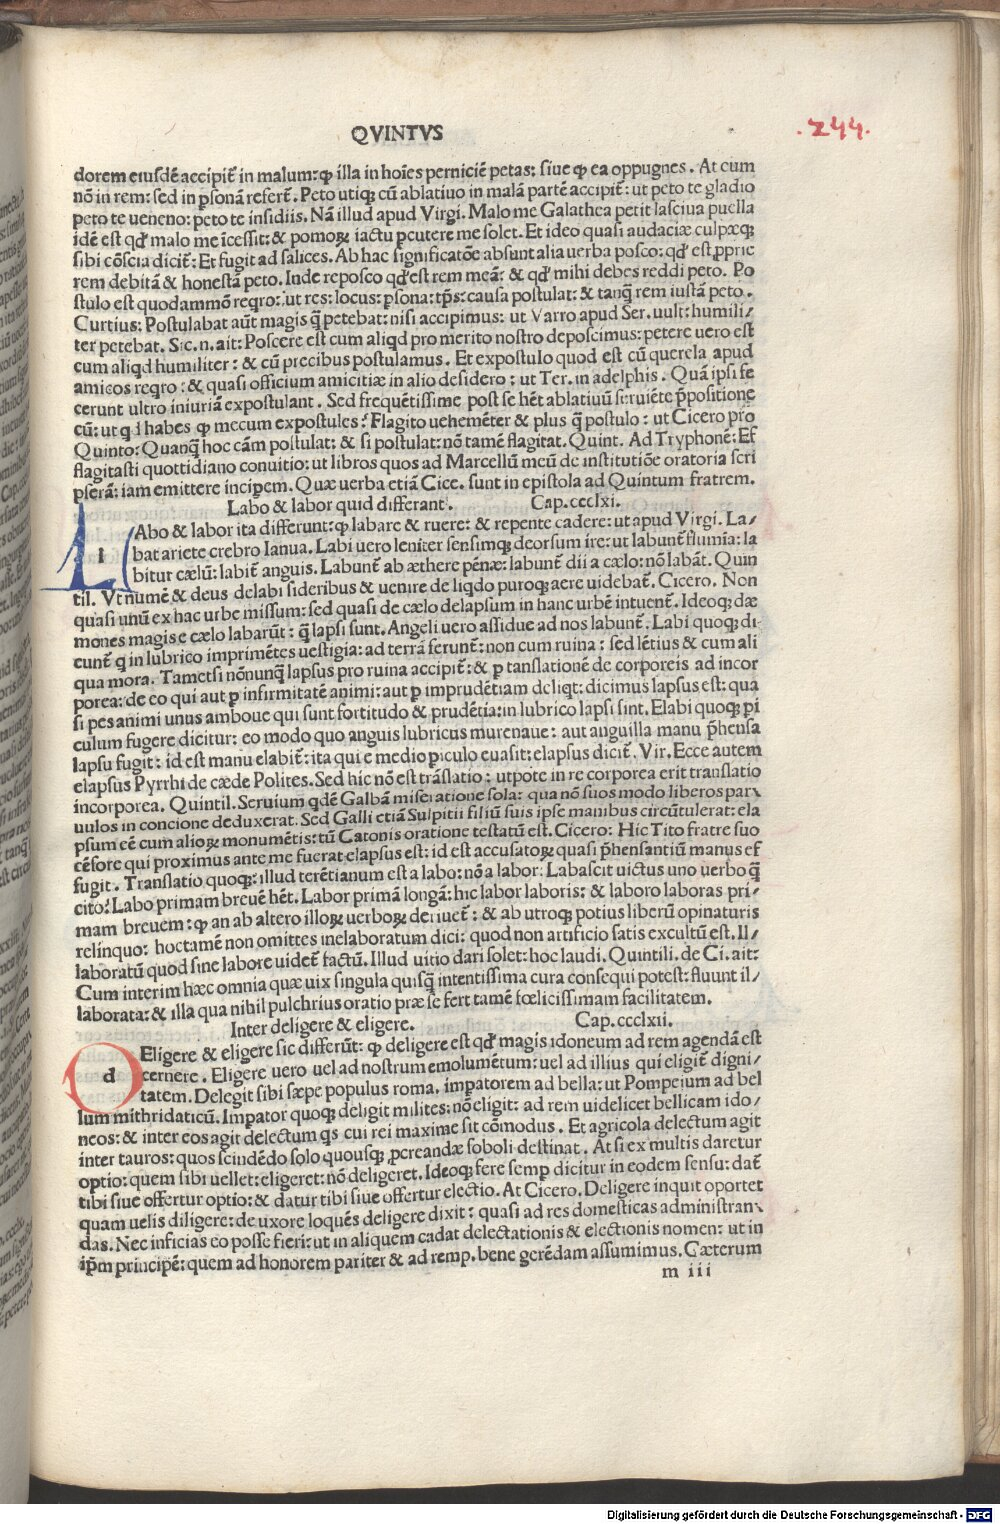 QVINTVS
.244.
dorem eiusdẽ accipit̃ in malum: ꝙ illa in hoĩes perniciẽ petas: siue ꝙ ea oppugnes. At cum
nõ in rem: sed in ꝑsonã refert̃. Peto utiqꝫ cũ ablatiuo in malã partẽ accipit̃: ut peto te gladio
peto te ueneno: peto te insidiis. Nã illud apud Virgi. Malo me Galathea petit lasciua puella
idẽ est qđ malo me ĩcessit: & pomoꝝ iactu ꝑcutere me solet. Et ideo quasi audaciæ culpæqꝫ
sibi cõscia dicit̃: Et fugit ad salices. Ab hac significatõe absunt alia uerba posco: qđ est ꝓprie
rem debitã & honestã peto. Inde reposco qđ est rem meã: & qđ mihi debes reddi peto. Po
stulo est quodammõ reqro: ut res: locus: ꝑsona: tp̃s: causa postulat: & tanq̃ rem iustã peto.
Curtius: Postulabat aũt magis q̃ petebat: nisi accipimus: ut Varro apud Ser. uult: humili/
ter petebat. Sic. n. ait: Poscere est cum aliqd pro merito nostro deposcimus: petere uero est
cum aliqd humiliter: & cũ precibus postulamus. Et expostulo quod est cũ querela apud
amicos reqro: & quasi officium amicitiæ in alio desidero: ut Ter. in adelphis. Quã ipsi fe
cerunt ultro iniuriã expostulant. Sed frequẽtissime post se hẽt ablatiuũ seruiẽte p̃positione
cũ: ut q i habes ꝙ mecum expostules: Flagito uehemẽter & plus q̃ postulo: ut Cicero pro
Quinto: Quanq̃ hoc cãm postulat: & si postulat: nõ tamẽ flagitat. Quint. Ad Tryphonẽ: Ef
flagitasti quottidiano conuitio: ut libros quos ad Marcellũ meũ de institutiõe oratoria scri
pserã: iam emittere incipem. Quæ uerba etiã Cice. sunt in epistola ad Quintum fratrem.
Labo & labor quid differant. Cap. ccclxi.
l
Abo & labor ita differunt: ꝙ labare & ruere: & repente cadere: ut apud Virgi. La/
bat ariete crebro Ianua. Labi uero leniter sensimqꝫ deorsum ire: ut labunt̃ flumia: la
bitur cælũ: labit̃ anguis. Labunt̃ ab æthere pẽnæ: labunt̃ dii a cælo: nõ labãt. Quin
til. Vt numẽ & deus delabi sideribus & uenire de liqdo puroqꝫ aere uidebat̃. Cicero. Non
quasi unũ ex hac urbe missum: sed quasi de cælo delapsum in hanc urbẽ intuent̃. Ideoqꝫ dæ
mones magis e cælo labarũt: q̃ lapsi sunt. Angeli uero assidue ad nos labunt̃. Labi quoqꝫ di
cunt̃ q in lubrico imprimẽtes uestigia: ad terrã ferunt̃: non cum ruina: sed lẽtius & cum ali
qua mora. Tametsi nõnunq̃ lapsus pro ruina accipit̃: & ꝑ translationẽ de corporeis ad incor
porea: de eo qui aut ꝑ infirmitatẽ animi: aut ꝑ imprudẽtiam deliqt: dicimus lapsus est: qua
si pes animi unus amboue qui sunt fortitudo & prudẽtia: in lubrico lapsi sint. Elabi quoqꝫ pi
culum fugere dicitur: eo modo quo anguis lubricus murenaue: aut anguilla manu p̃hensa
lapsu fugit: id est manu elabit̃: ita qui e medio ꝑiculo euasit: elapsus dicit̃. Vir. Ecce autem
elapsus Pyrrhi de cæde Polites. Sed hic nõ est trãslatio: utpote in re corporea erit translatio
incorporea. Quintil. Seruium qdẽ Galbã miseratione sola: qua nõ suos modo liberos par\
uulos in concione deduxerat. Sed Galli etiã Sulpitii filiũ suis ipse manibus circũtulerat: ela
psum cẽ cum alioꝝ monumẽtis: tũ Catonis oratione testatũ est. Cicero: Hic Tito fratre suo
cẽsore qui proximus ante me fuerat elapsus est: id est accusatoꝝ quasi p̃hensantiũ manus ef
fugit. Translatio quoqꝫ: illud terẽtianum est a labo: nõ a labor: Labascit uictus uno uerbo q̃
cito: Labo primam breuẽ hẽt. Labor primã longã: hic labor laboris: & laboro laboras pri/
mam breuem: ꝙ an ab altero illoꝝ uerboꝝ deriuet̃: & ab utroqꝫ potius liberũ opinaturis
relinquo: hoctamẽ non omittes inelaboratum dici: quod non artificio satis excultũ est. Il/
laboratũ quod sine labore uidet̃ factũ. Illud uitio dari solet: hoc laudi. Quintili. de Ci. ait:
Cum interim hæc omnia quæ uix singula quisq̃ intentissima cura consequi potest: fluunt il/
laborata: & illa qua nihil pulchrius oratio præ se fert tamẽ fœlicissimam facilitatem.
Inter deligere & eligere. Cap. ccclxii.
d
Eligere & eligere sic differũt: ꝙ deligere est qđ magis idoneum ad rem agendã est
cernere. Eligere uero uel ad nostrum emolumẽtum: uel ad illius qui eligit̃ digni/
tatem. Delegit sibi sæpe populus roma. impatorem ad bella: ut Pompeium ad bel
lum mithridaticũ. Impator quoqꝫ deligit milites: nõ eligit: ad rem uidelicet bellicam ido/
neos: & inter eos agit delectum qs cui rei maxime sit cõmodus. Et agricola delectum agit
inter tauros: quos scindẽdo solo quousqꝫ ꝓcreandæ soboli destinat. At si ex multis daretur
optio: quem sibi uellet: eligeret: nõ deligeret. Ideoqꝫ fere semp dicitur in eodem sensu: dat̃
tibi siue offertur optio: & datur tibi siue offertur electio. At Cicero. Deligere inquit oportet
quam uelis diligere: de uxore loquẽs deligere dixit: quasi ad res domesticas administran\
das. Nec inficias eo posse fieri: ut in aliquem cadat delectationis & electionis nomen: ut in
ip̃m principẽ: quem ad honorem pariter & ad remp. bene gerẽdam assumimus. Cæterum
m iii
Digitalisierung gefördert durch die Deutsche Forschungsgemeinschaft - DFG